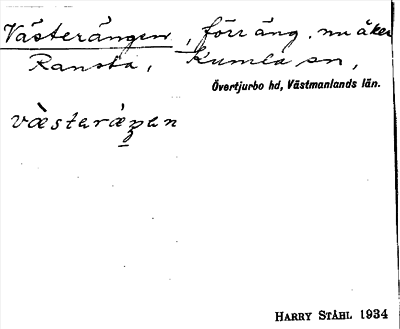 Västerängen, förr äng. nu åker
Ransta, Kumla sn,
Övertjurbo hd, Västmanlands län.
væ̀steræ̀ŋen
HARRY STÅHL 1934